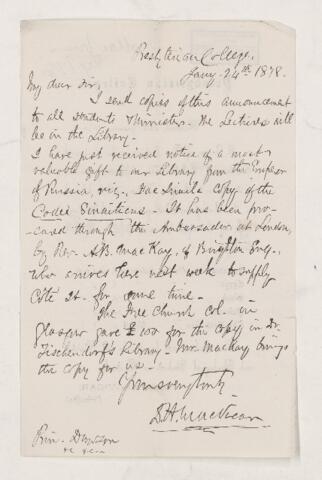 Presbyterian College.
Jany. 24th 1878.
My dear Sir,
I send copies of this announcement
to all students & Ministers. The Lectures will
be in the Library.
I have just received notice of a most
valuable gift to our Library from the Emperor
of Russia, viz. Fac Simile copy of the
Codex Sinaiticus - It has been pro-
cured through the Ambassador at London,
by Rev. A.B. MacKay, of Brighton Eng.
who arrives here next week to supply
Côté St. for some time.
The Free Church Col. in
Glasgow gave £100 for the copy in Dr.
Tischendorf's Library - Mr. MacKay brings
the copy for us -
Yours very truly
D.H. MacVicar
Prin. Dawson